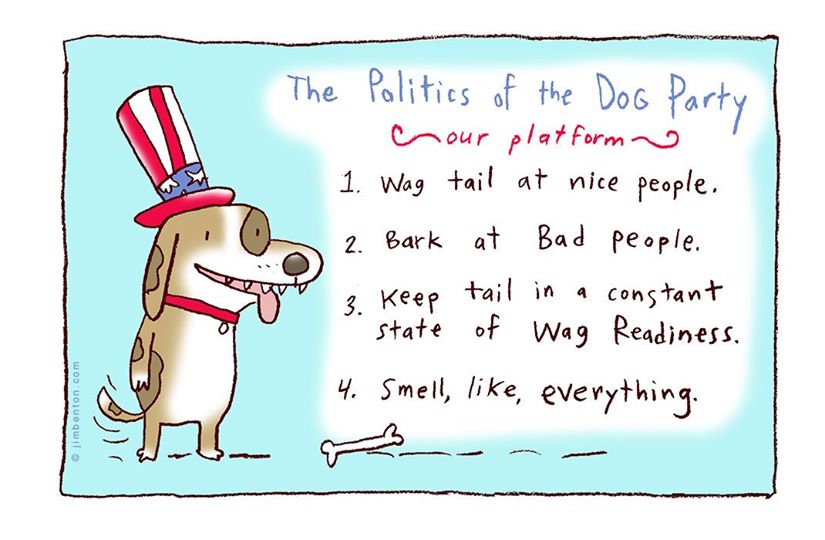 The Politics of the Dog Party
our platform
1. Wag tail at nice people.
2. Bark at Bad people.
3. Keep tail in a constant
state of Wag Readiness.
4. Smell, like, everything.
© jimbenton.com